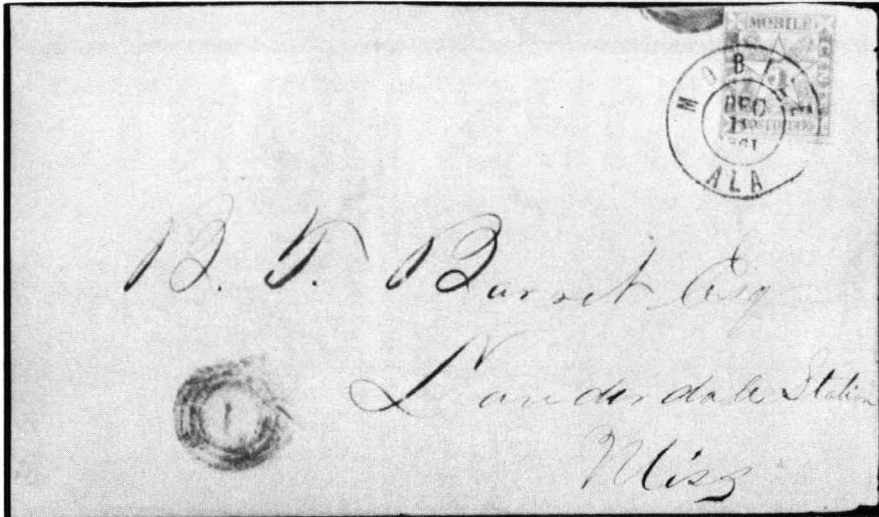 MOBILE
MOBILE
DEC
11
1861
ALA
B. T. Barret Esq
Lauderdale Station
Miss
1